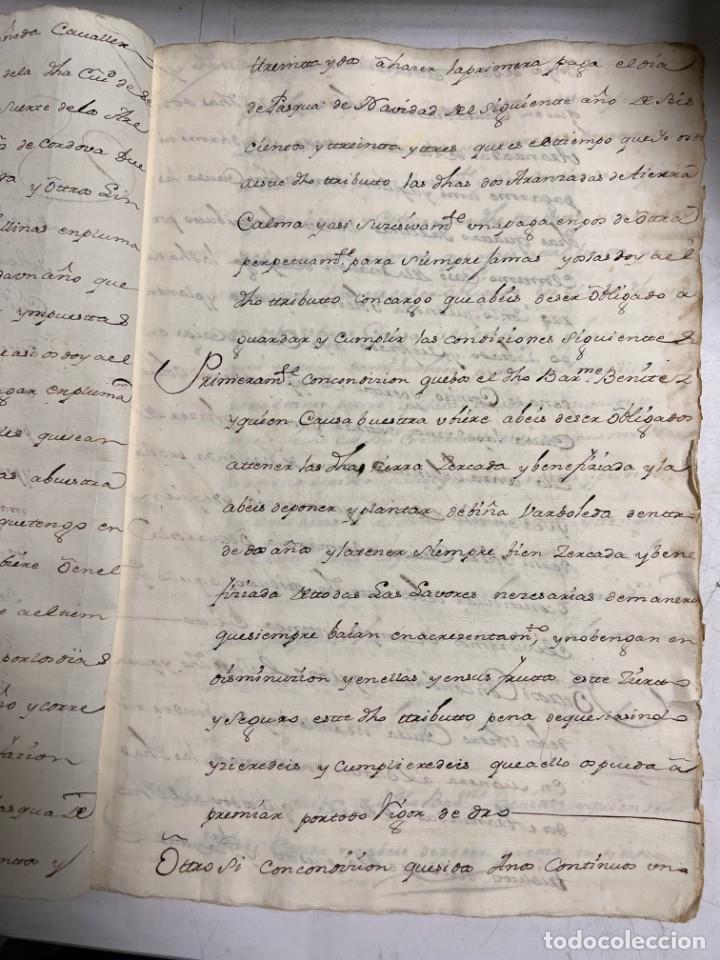 ñoda Cavallex
dela dha Ciud de Se
suerte dela Axe
de Cordova Due
ga y Ottra Lin
llinas enpluma
davn año que
ympuesttas
easi os doy a el
ugar en pluma
quesean
as abuestra
quetengo en
biere en el
a el tiem
por los dias
o y corre
asqua de
entos y
ttreintta y dos a hazer la primera paga el dia
de Pasqua de Navidad del Siguiente año de seis
cientos y ttreintta y ttres que es el ttiempo que yo os doy
a estte dho ttributto las dhas dos Aranzadas de tierra
Calma y asi suzesivamte vna paga en pos de ottra
perpetuamte para siempre jamas y os las doy a el
dho ttributto con cargo que abeis de ser obligado a
guardar y cumplir las condiziones siguientes
Primeramte con condizion que bos el dho Barme Benitez
y quien Causa buestra vbiere abeis de ser obligados
a ttener las dha tierra Zercada y benefiziada y la
abeis de poner y plantar de biña y arboleda denttro
de dos años y la tener siempre bien Zercada y bene
fiziada de ttodas las Lavores nezesarias de manera
que siempre baian en acresentamto, y no bengan en
disminuzion y en ellas y en su frutto estte Ziertto
y Seguro estte dho ttributto pena de que si asi no lo
yzieredeis y cumplieredeis que a ello os pueda a
premiar por todo Rigor de dro
Ottro si con condizion que si dos Años Continuos vn
todocoleccion
todocoleccion.net